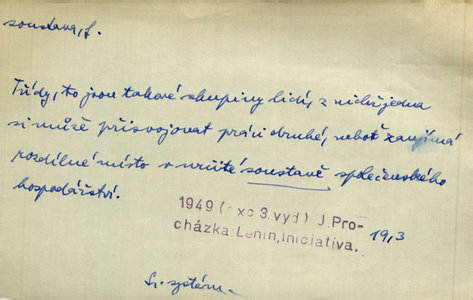 soustava, f.
Třídy, to jsou takové skupiny lidí, z nichž jedna
si může přisvojovat práci druhé, neboť zaujímá
rozdílné místo v určité soustavě společenského
hospodářství.
1949 ( xc 3. vyd) J. Pro-
cházka: Lenin, Iniciativa. 19,3
systém